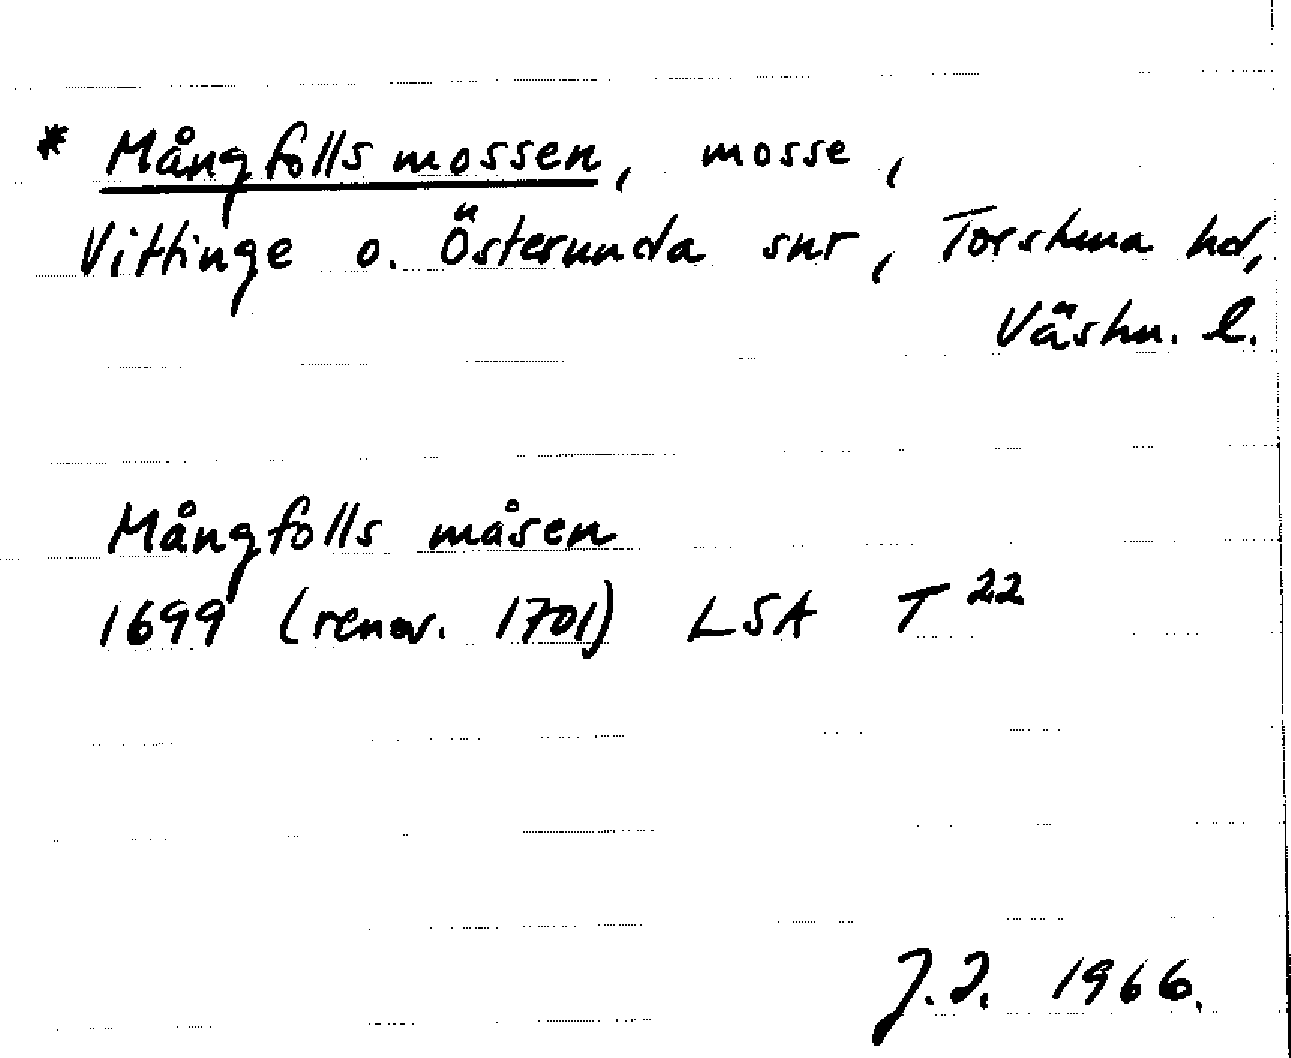 * Mångfolls mossen, mosse,
Vittinge o. Österunda snr, Torstuna hd,
Västm. l.
Mångfolls måsen
1699 (renov. 1701) LSA T 22
J.I. 1966.